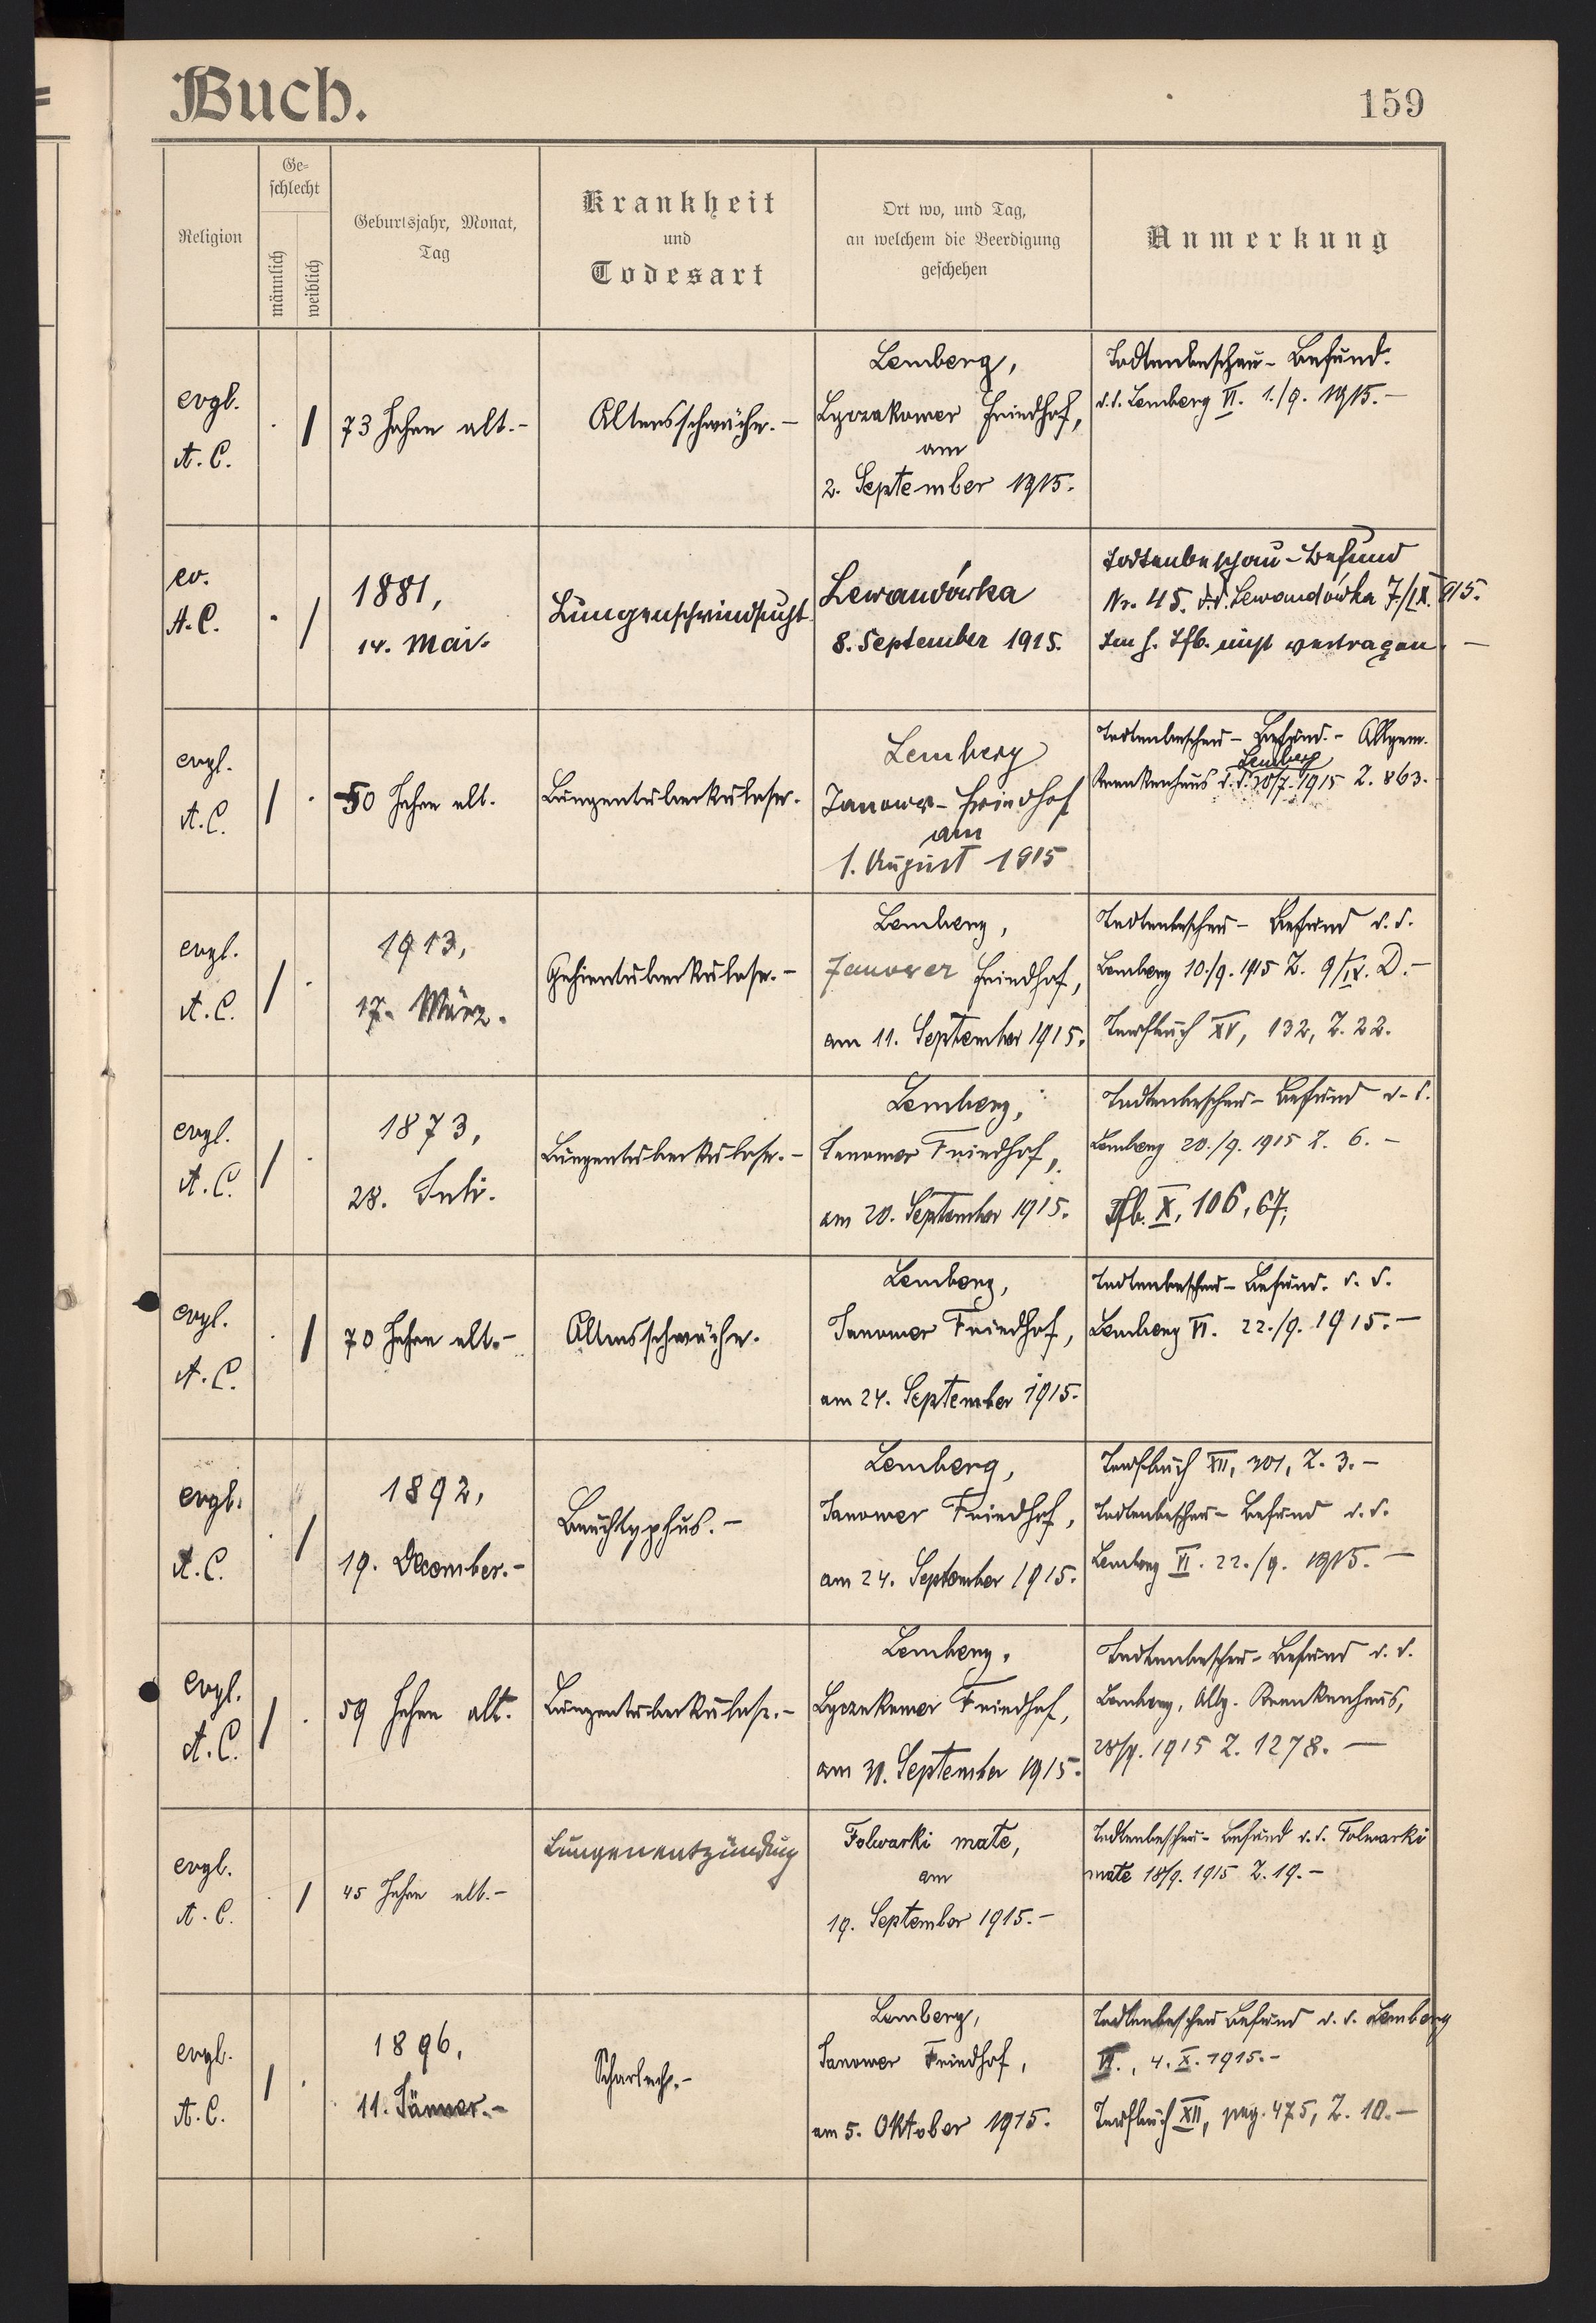 Buch.
159
Religion
Ge-
schlecht
männlich
weiblich
Geburtsjahr, Monat,
Tag
Krankheit
und
Todesart
Ort wo, und Tag,
an welchem die Beerdigung
geschehen
Anmerkung
evgl.
A. C.
73 Jahre alt.-
Altersschwäche.-
Lemberg,
Lyczakower Friedhof,
am
2. September 1915.
Todtenbeschau-Befund.
d.d. Lemberg VI. 1./9. 1915.-
ev.
A. C.
1881,
14. Mai.
Lungenschwindsucht.
Lewandówka
8. September 1915.
Todtenbeschau-Befund
Nr. 45. d.d. Lewandówka 7./IX. 915.
Im h. Tfb. nicht vertragen. -
evgl.
A. C.
50 Jahre alt.
Lungentuberkulose.
Lemberg
Janower-Friedhof
am
1. August 1915
Todtenbeschau-Befund.- Allgem.
Lemberg
Krankenhaus d.d. 30/7. 1915 Z. 863.
evgl.
A. C.
1913,
17. März.
Gehirntuberkulose.-
Lemberg,
Janower Friedhof,
am 11. September 1915.
Todtenbeschau-Befund d.d.
Lemberg 10./9. 1915 Z. 9/IX. D.-
Taufbuch XV, 132, Z. 22.
evgl.
A. C.
1873,
28. Juli.
Lungentuberkulose.-
Lemberg,
Janower Friedhof,
am 20. September 1915.
Todtenbeschau-Befund d.d.
Lemberg 20./9. 1915 Z. 6.-
Tfb. X, 106, 67,
evgl.
A. C.
70 Jahre alt.-
Altersschwäche.
Lemberg,
Janower Friedhof,
am 24. September 1915.
Todtenbeschau-Befund. d.d.
Lemberg VI. 22./9. 1915.-
evgl.
A. C.
1892,
19. December.-
Bauchtyphus.-
Lemberg,
Janower Friedhof,
am 24. September 1915.
Taufbuch XII, 301, Z. 3.-
Todtenbeschau-Befund d.d.
Lemberg VI. 22./9. 1915.-
evgl.
A. C.
59 Jahre alt.
Lungentuberkulose.-
Lemberg,
Lyczakower Friedhof,
am 30. September 1915.
Todtenbeschau-Befund d.d.
Lemberg, Allg. Krankenhaus,
28/9. 1915 Z. 1278.-
evgl.
A. C.
45 Jahre alt.-
Lungenentzündung
Folwarki małe,
am
19. September 1915.-
Todtenbeschau-Befund d.d. Folwarki
małe 18/9. 1915 Z. 19.-
evgl.
A. C.
1896,
11. Jänner.-
Scharlach.-
Lemberg,
Janower Friedhof,
am 5. Oktober 1915.
Todtenbeschau Befund d.d. Lemberg
VI., 4. X. 1915.-
Taufbuch XII, pag. 475, Z. 10.-